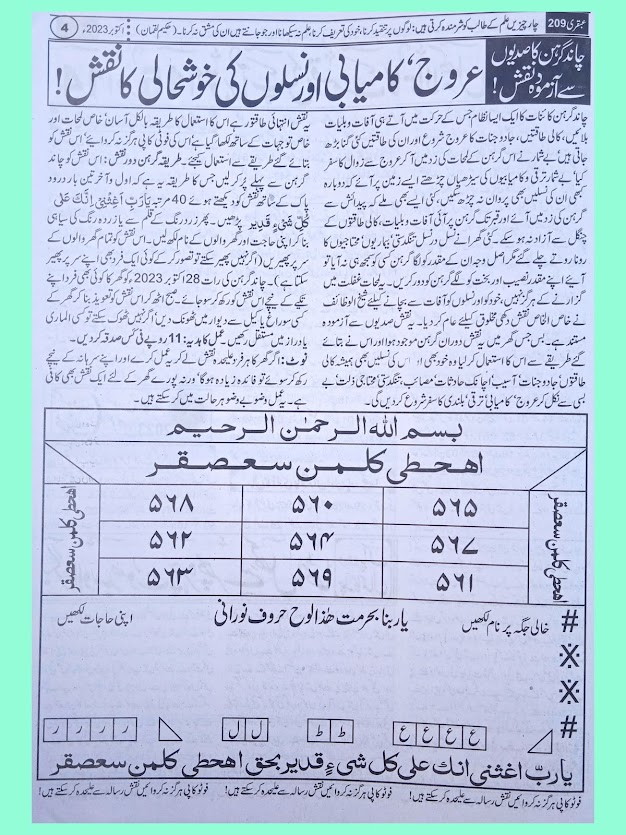 عبقری 209 چار چیزیں علم کے طالب کو شرمندہ کرتی ہیں: لوگوں پر تنقید کرنا، خود کی تعریف کرنا، علم نہ سیکھنا اور جو جانتے ہیں ان کی مشق نہ کرنا۔ (حکیم لقمان) اکتوبر 2023ء 4
چاند گرہن کا صدیوں
سے آزمودہ نقش!
عروج، کامیابی اور نسلوں کی خوشحالی کا نقش!
چاند گرہن کائنات کا ایک ایسا نظام جس کے حرکت میں آتے ہی آفات وبلیات
بلائیں، کالی طاقتیں، جادو جنات کا عروج شروع اور ان کی طاقتیں کئی گنا بڑھ
جاتی ہیں بے شمار نے اس گرہن کے لمحات کی زد میں آ کر عروج سے زوال کا سفر
کیا‘ بے شمار ترقی و کامیابیوں کی سیڑھیاں چڑھتے ایسے زمین پر آئے کہ دوبارہ
کبھی ان کی نسلیں بھی پروان نہ چڑھیں‘ کئی ایسے بھی ملے کہ پیدائش سے
گرہن کی زد میں آئے اور قبر تک گرہن پر آئی آفات و بلیات، کالی طاقتوں کے
چنگل سے آزاد نہ ہو سکے۔ کئی گھرانے نسل در نسل تنگدستی‘ بیماریوں‘ محتاجیوں کا
رونا روتے چلے گئے مگر اصل وجہ ان کے مقدر کو لگا گرہن کسی کو سمجھ ہی نہ آیا تو
آیئے اپنے مقدر نصیب اور بخت کو لگے گرہن کو دور کریں۔ یہ لمحات غفلت میں
گزارنے کے ہرگز نہیں، خود کو اور نسلوں کو آفات سے بچانے کیلئے شیخ الوظائف
نے خاص الخاص نقش دکھی مخلوق کیلئے عام کر دیا۔ یہ نقش صدیوں سے آزمودہ
مستند ہے۔ بس جس گھر میں یہ نقش دوران گرہن موجود ہوا اور اس نے بتائے
گئے طریقے سے اس کا استعمال کر لیا وہ خود بھی اور اس کی نسلیں بھی ہمیشہ کالی
طاقتوں‘ جادو جنات‘ آسیب‘ اچانک حادثات‘ مصائب، تنگدستی‘ محتاجی‘ ذلت‘ بے
بسی سے نکل کر عروج‘ کامیابی‘ ترقی‘ بلندی کا سفر شروع کر دیں گی۔
یہ نقش انتہائی طاقتور ہے اس کا استعمال کا طریقہ بالکل آسان‘ خاص لمحات اور
خاص توجہات کے ساتھ لکھا گیا ہے اس کی فوٹو کاپی ہرگز نہ کروائیے‘ اس نقش کو
بتائے گئے طریقے سے استعمال کیجئے۔ طریقہ گرہن دور نقش: اس نقش کو چاند
گرہن سے پہلے پُر کر لیں جس کا طریقہ یہ ہے کہ اول و آخر تین بار درود
پاک کے ساتھ نقش کو دیکھتے ہوئے 40 مرتبہ یَارَبِّ اَغِثْنِیْ اِنَّکَ عَلٰی
کُلِّ شَیْءٍ قَدِیر پڑھیں۔ پھر زرد رنگ کے قلم سے یا زردہ رنگ کی سیاہی
بنا کر اپنی حاجت اور گھر والوں کے نام لکھ لیں۔ اس نقش کو تمام گھر والوں کے
سر پر پھیریں (اگر نہیں پھیر سکتے تو تصور کر کے کوئی ایک فرد بھی اپنے سر پر پھیر
سکتا ہے)۔ چاند گرہن کی رات 28 اکتوبر 2023ء کو گھر کا کوئی بھی فرد اپنے
تکیے کے نیچے اس نقش کو رکھ کر سو جائے۔ صبح اٹھ کر اس نقش کو تعویذ بنا کر گھر کے
کسی سوراخ یا کیل سے دیوار میں ٹھونک دیں‘ اگر نہیں ٹھونک سکتے تو کسی الماری
یا دراز میں مستقل رکھیں۔ عمل کا ہدیہ: 11 روپے فی کس صدقہ کر دیں۔
نوٹ: اگر گھر کا ہر فرد علیحدہ نقش لے کر یہ عمل کرے اور اپنے سرہانے کے نیچے
رکھ کر سوئے تو فائدہ زیادہ ہوگا‘ ورنہ پورے گھر کے لئے ایک نقش بھی کافی
ہے۔ یہ عمل وضو بے وضو ہر حالت میں کر سکتے ہیں۔
بسم اللہ الرحمٰن الرحیم
اھحطی کلمن سعصقر
اھحطی کلمن سعصقر
۵۶۵ ۵۶۰ ۵۶۸
۵۶۷ ۵۶۴ ۵۶۲
۵۶۱ ۵۶۹ ۵۶۳
اھحطی کلمن سعصقر
# خالی جگہ پر نام لکھیں یاربنا بحرمت ھٰذا لوح حروف نورانی اپنی حاجات لکھیں
※
※
#
ع ع ع ع ط ط ل ل ر ر ر ر
یاربّ اغثنی انک علی کل شیءٍ قدیر بحق اھحطی کلمن سعصقر
فوٹو کاپی ہرگز نہ کروائیں نقش رسالہ سے علیحدہ کر سکتے ہیں! فوٹو کاپی ہرگز نہ کروائیں نقش رسالہ سے علیحدہ کر سکتے ہیں! فوٹو کاپی ہرگز نہ کروائیں نقش رسالہ سے علیحدہ کر سکتے ہیں!